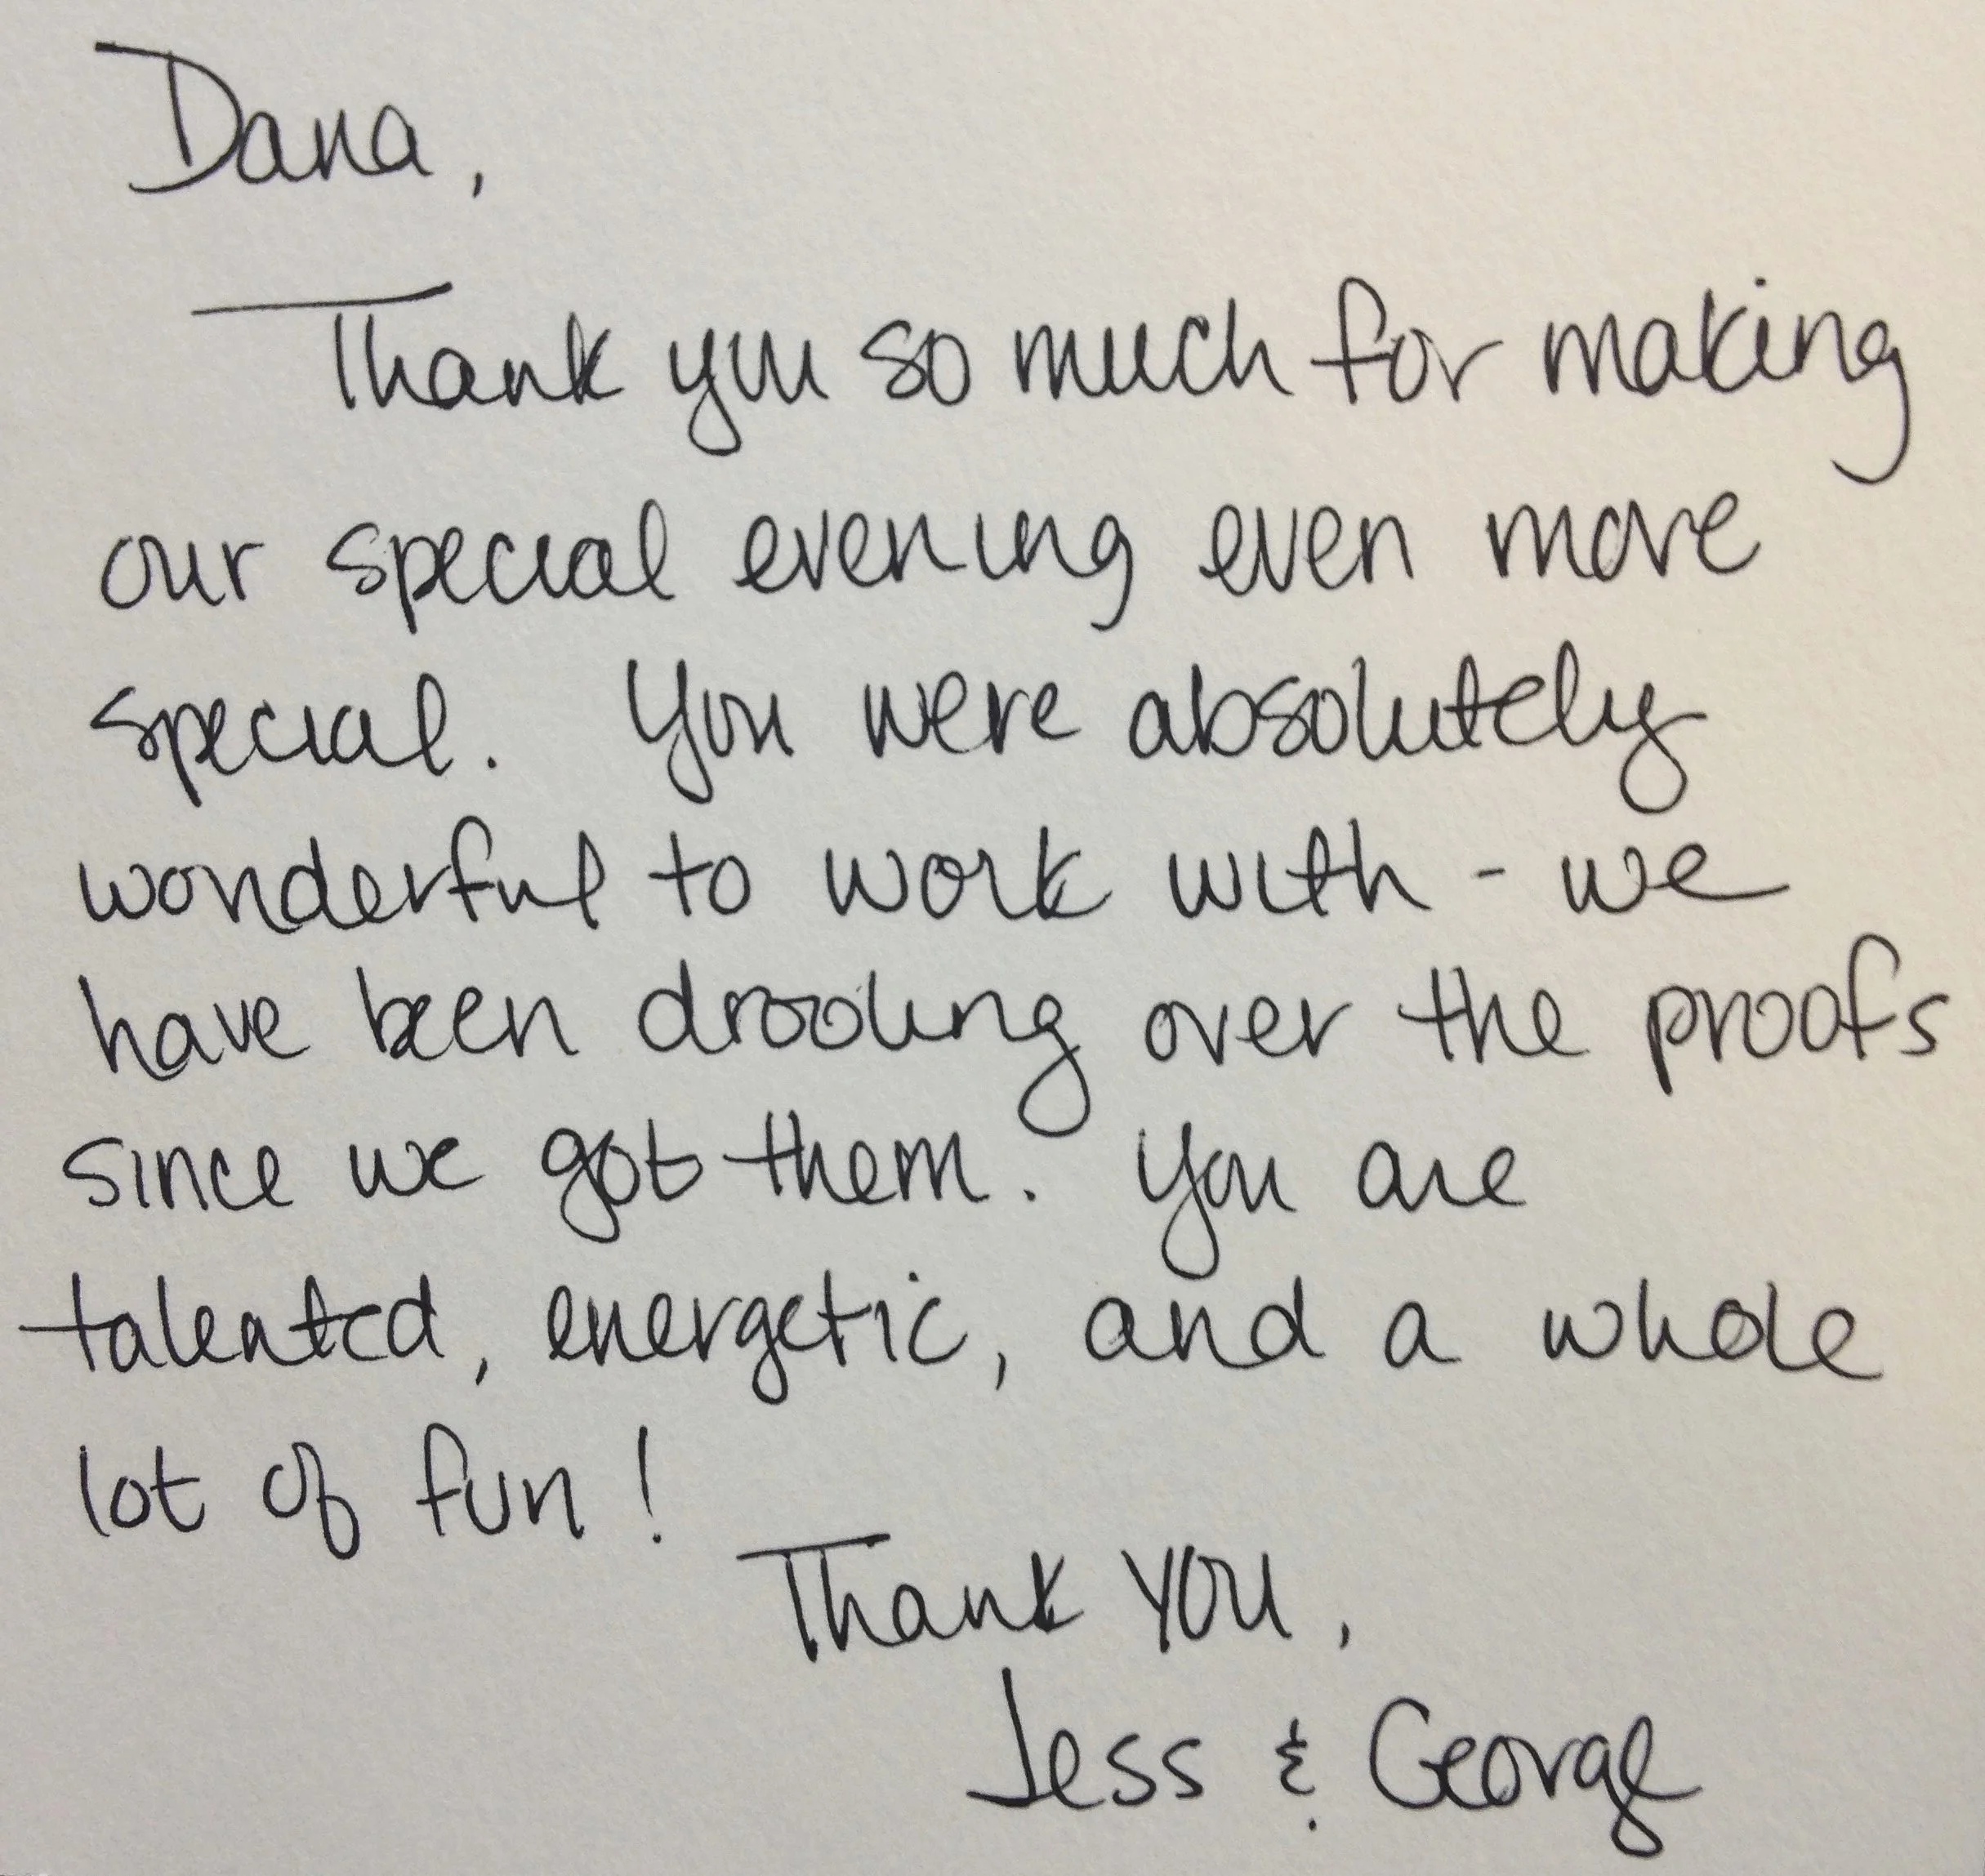 Dana,
Thank you so much for making
our special evening even more
special. You were absolutely
wonderful to work with - we
have been drooling over the proofs
since we got them. You are
talented, energetic, and a whole
lot of fun!
Thank you,
Jess & George